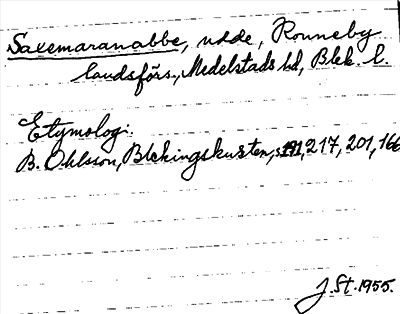 Saxemaranabbe, udde, Ronneby
landsförs., Medelstads hd, Blek. l.
Etymologi:
B. Ohlsson, Blekingskusten, s. 191, 217, 201, 166
J. St. 1955.